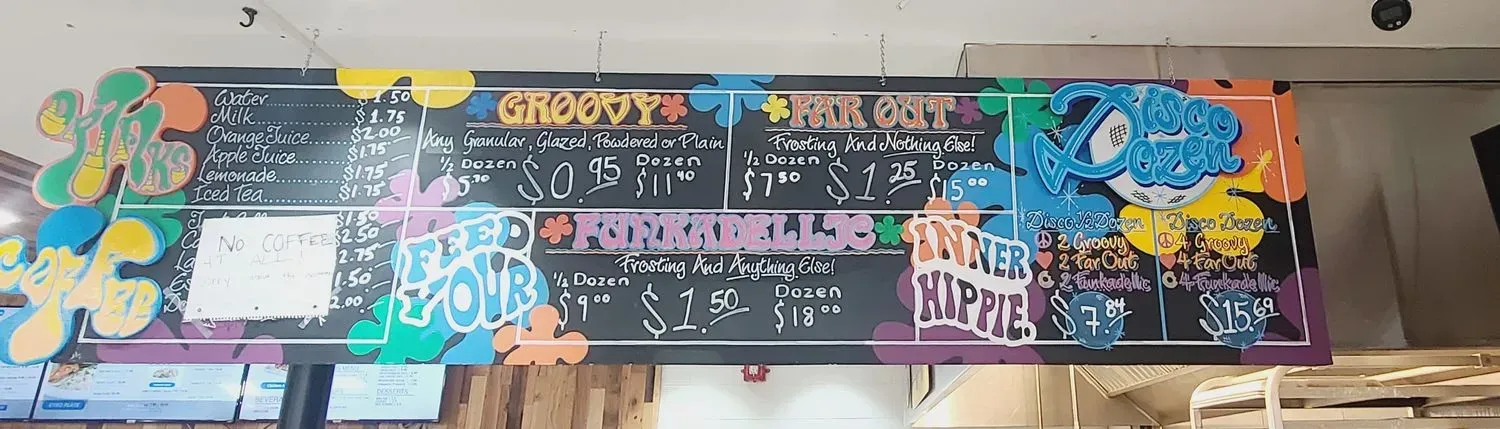 DRINKS
Water $1.50
Milk $1.75
Orange Juice $2.00
Apple Juice $1.75
Lemonade $1.75
Iced Tea $1.75
COFFEE
$1.50
$2.50
2.75
1.50
2.00
NO COFFEE
AT ALL!
GROOVY
Any Granular, Glazed, Powdered or Plain
1/2 Dozen
Dozen
$0.95
$11 40
FAR OUT
Frosting And Nothing Else!
1/2 Dozen
Dozen
$7 50
$1.25
$15 00
FEED
YOUR
FUNKADELLIC
Frosting And Anything Else!
1/2 Dozen
Dozen
$9 00
$1.50
$18 00
INNER
HIPPIE.
Disco
Dozen
Disco 1/2 Dozen
2 Groovy
2 Far Out
2 Funkadellic
$7.84
Disco Dozen
4 Groovy
4 Far Out
4 Funkadellic
$15.69
GYRO PLATE
MENU
BEVERA
DESSERTS